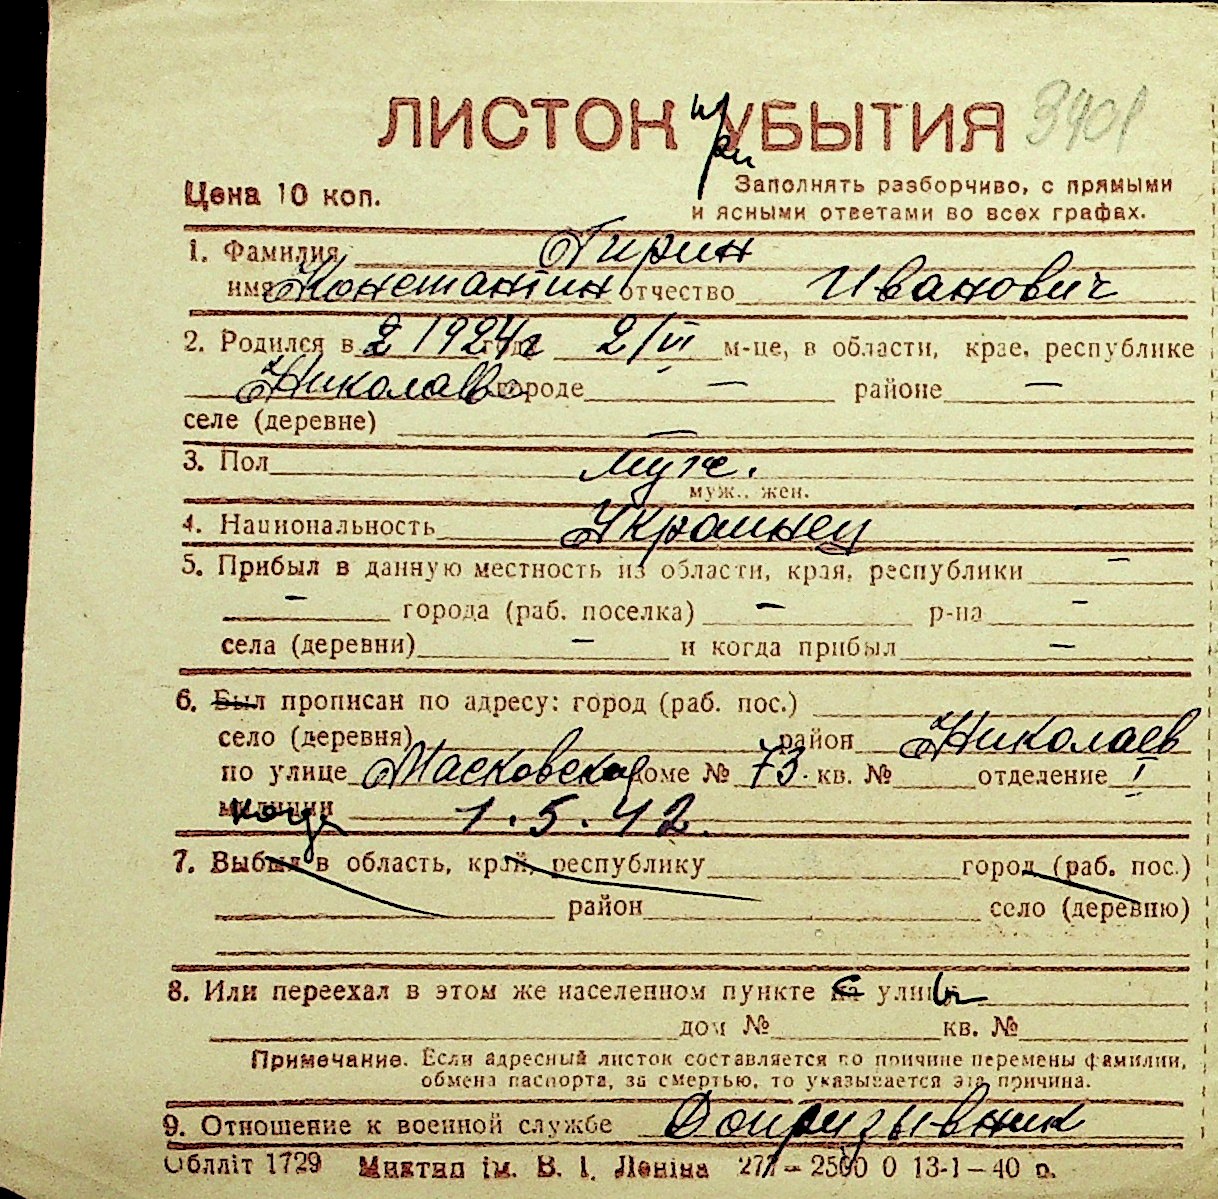 ЛИСТОК УБЫТИЯ 3401
при
Цена 10 коп.
Заполнять разборчиво, с прямыми
и ясными ответами во всех графах.
1. Фамилия Гирин
имя Константин отчество Иванович
2. Родился в 2 1924 г году 2/VI м-це, в области, крае, республике
Николаев городе — районе —
селе (деревне) —
3. Пол муж.
муж., жен.
4. Национальность Украинец
5. Прибыл в данную местность из области, края, республики —
— города (раб. поселка) — р-на —
села (деревни) — и когда прибыл —
6. Был прописан по адресу: город (раб. пос.)
село (деревня) район Николаев
по улице Масковская доме № 73. кв. № отделение I
милиции когда 1.5.42.
7. Выбыл в область, край, республику город (раб. пос.)
район село (деревню)
8. Или переехал в этом же населенном пункте на с улицу ы
дом № кв. №
Примечание. Если адресный листок составляется по причине перемены фамилии,
обмена паспорта, за смертью, то указывается эта причина.
9. Отношение к военной службе Допризывник
Облліт 1729 Миктип ім. В. І. Леніна 277–2500 0 13-1–40 р.